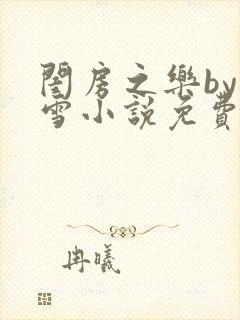 閨房之樂by
雪小説免費
冉曦